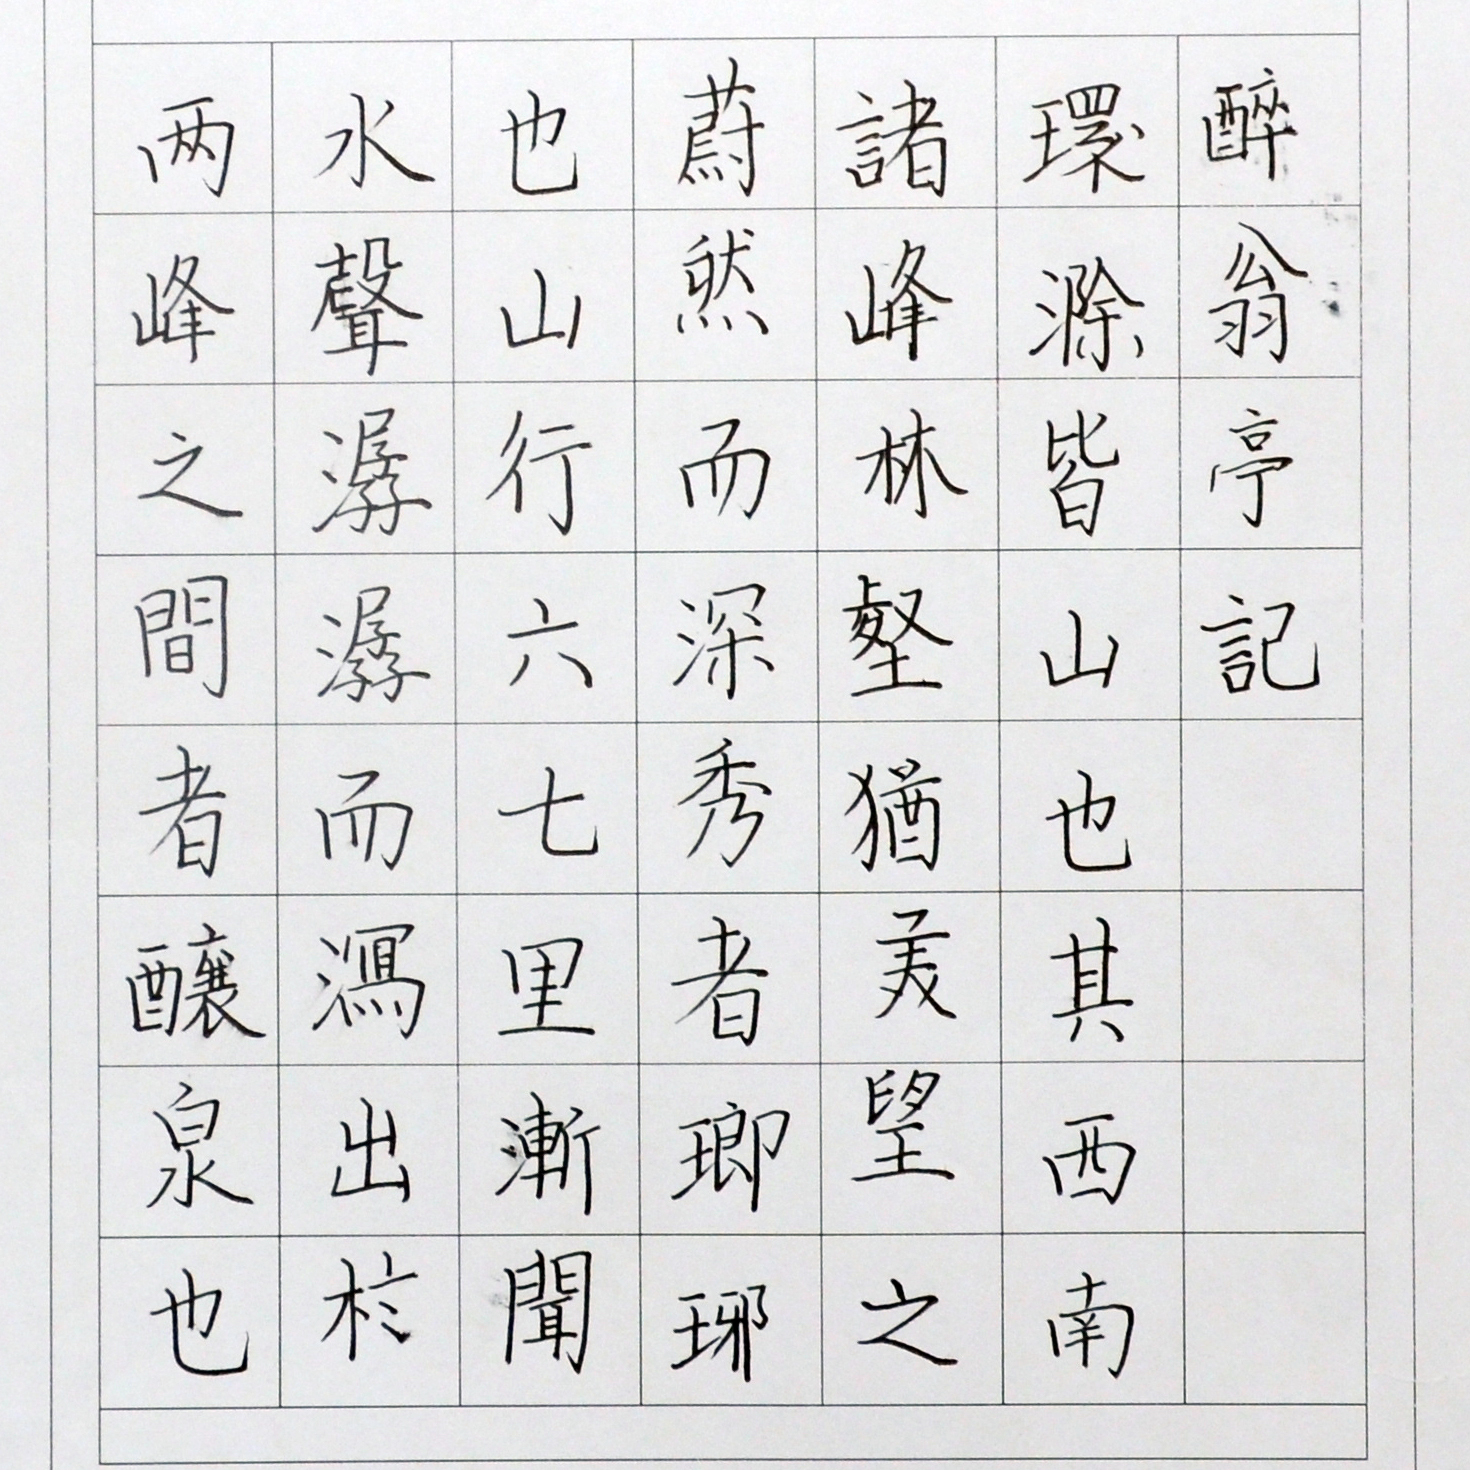 醉翁亭記
環滁皆山也其西南
諸峰林壑猶美望之
蔚然而深秀者瑯琊
也山行六七里漸聞
水聲潺潺而瀉出於
两峰之間者釀泉也